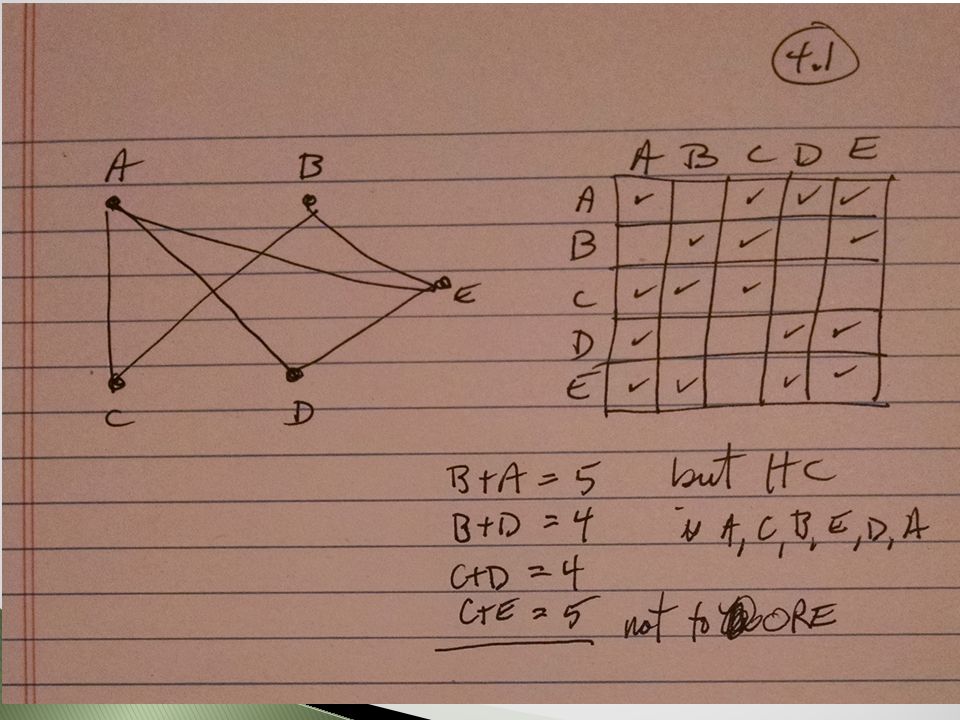 4.1
A B
E
C D
A B C D E
A ✓ ✓ ✓ ✓
B ✓ ✓ ✓
C ✓ ✓ ✓
D ✓ ✓ ✓
E ✓ ✓ ✓ ✓
B+A = 5 but HC
B+D = 4 is A, C, B, E, D, A
C+D = 4
C+E = 5 not to ORE